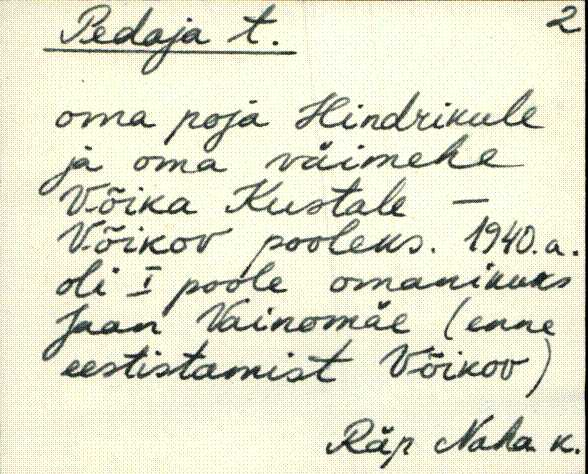 Pedaja t. 2
oma poja Hindrikule
ja oma väimehe
Võika Kustale —
Võikov pooleks. 1940.a.
oli I poole omanikuks
Jaan Vainomäe (enne
eestistamist Võikov)
Räp Naha k.